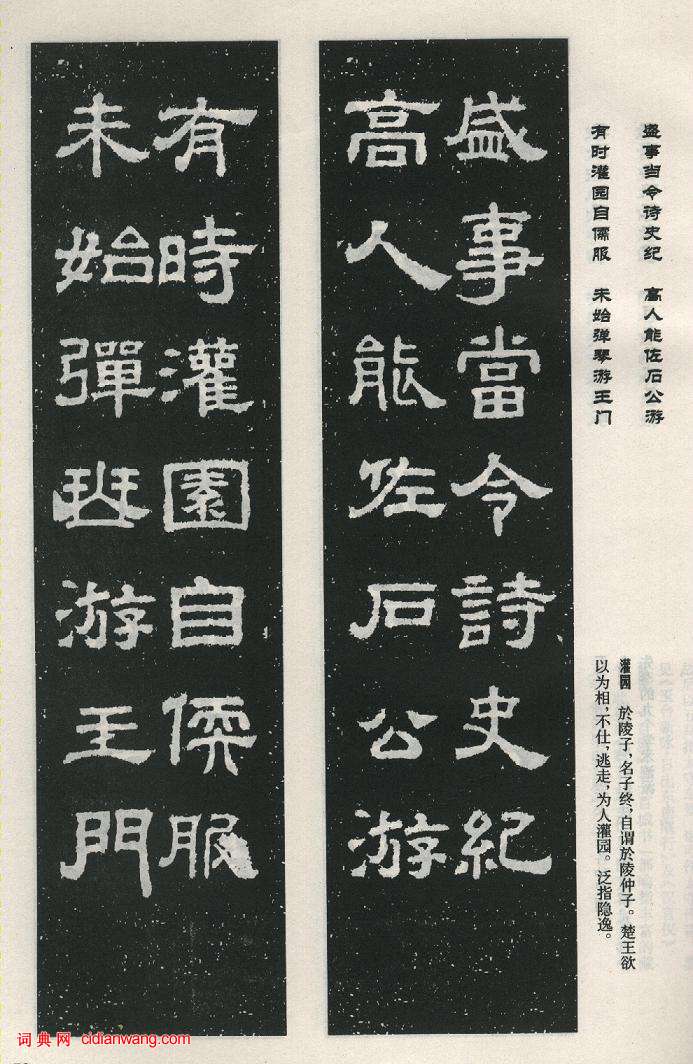 盛事当令诗史纪　高人能佐石公游
有时灌园自儒服　未始弹琴游王门
灌园　於陵子，名子终，自谓於陵仲子。楚王欲
以为相，不仕，逃走，为人灌园。泛指隐逸。
盛事當令詩史紀
高人能佐石公游
有時灌園自偄服
未始彈琴游王門
词典网 cidianwang.com